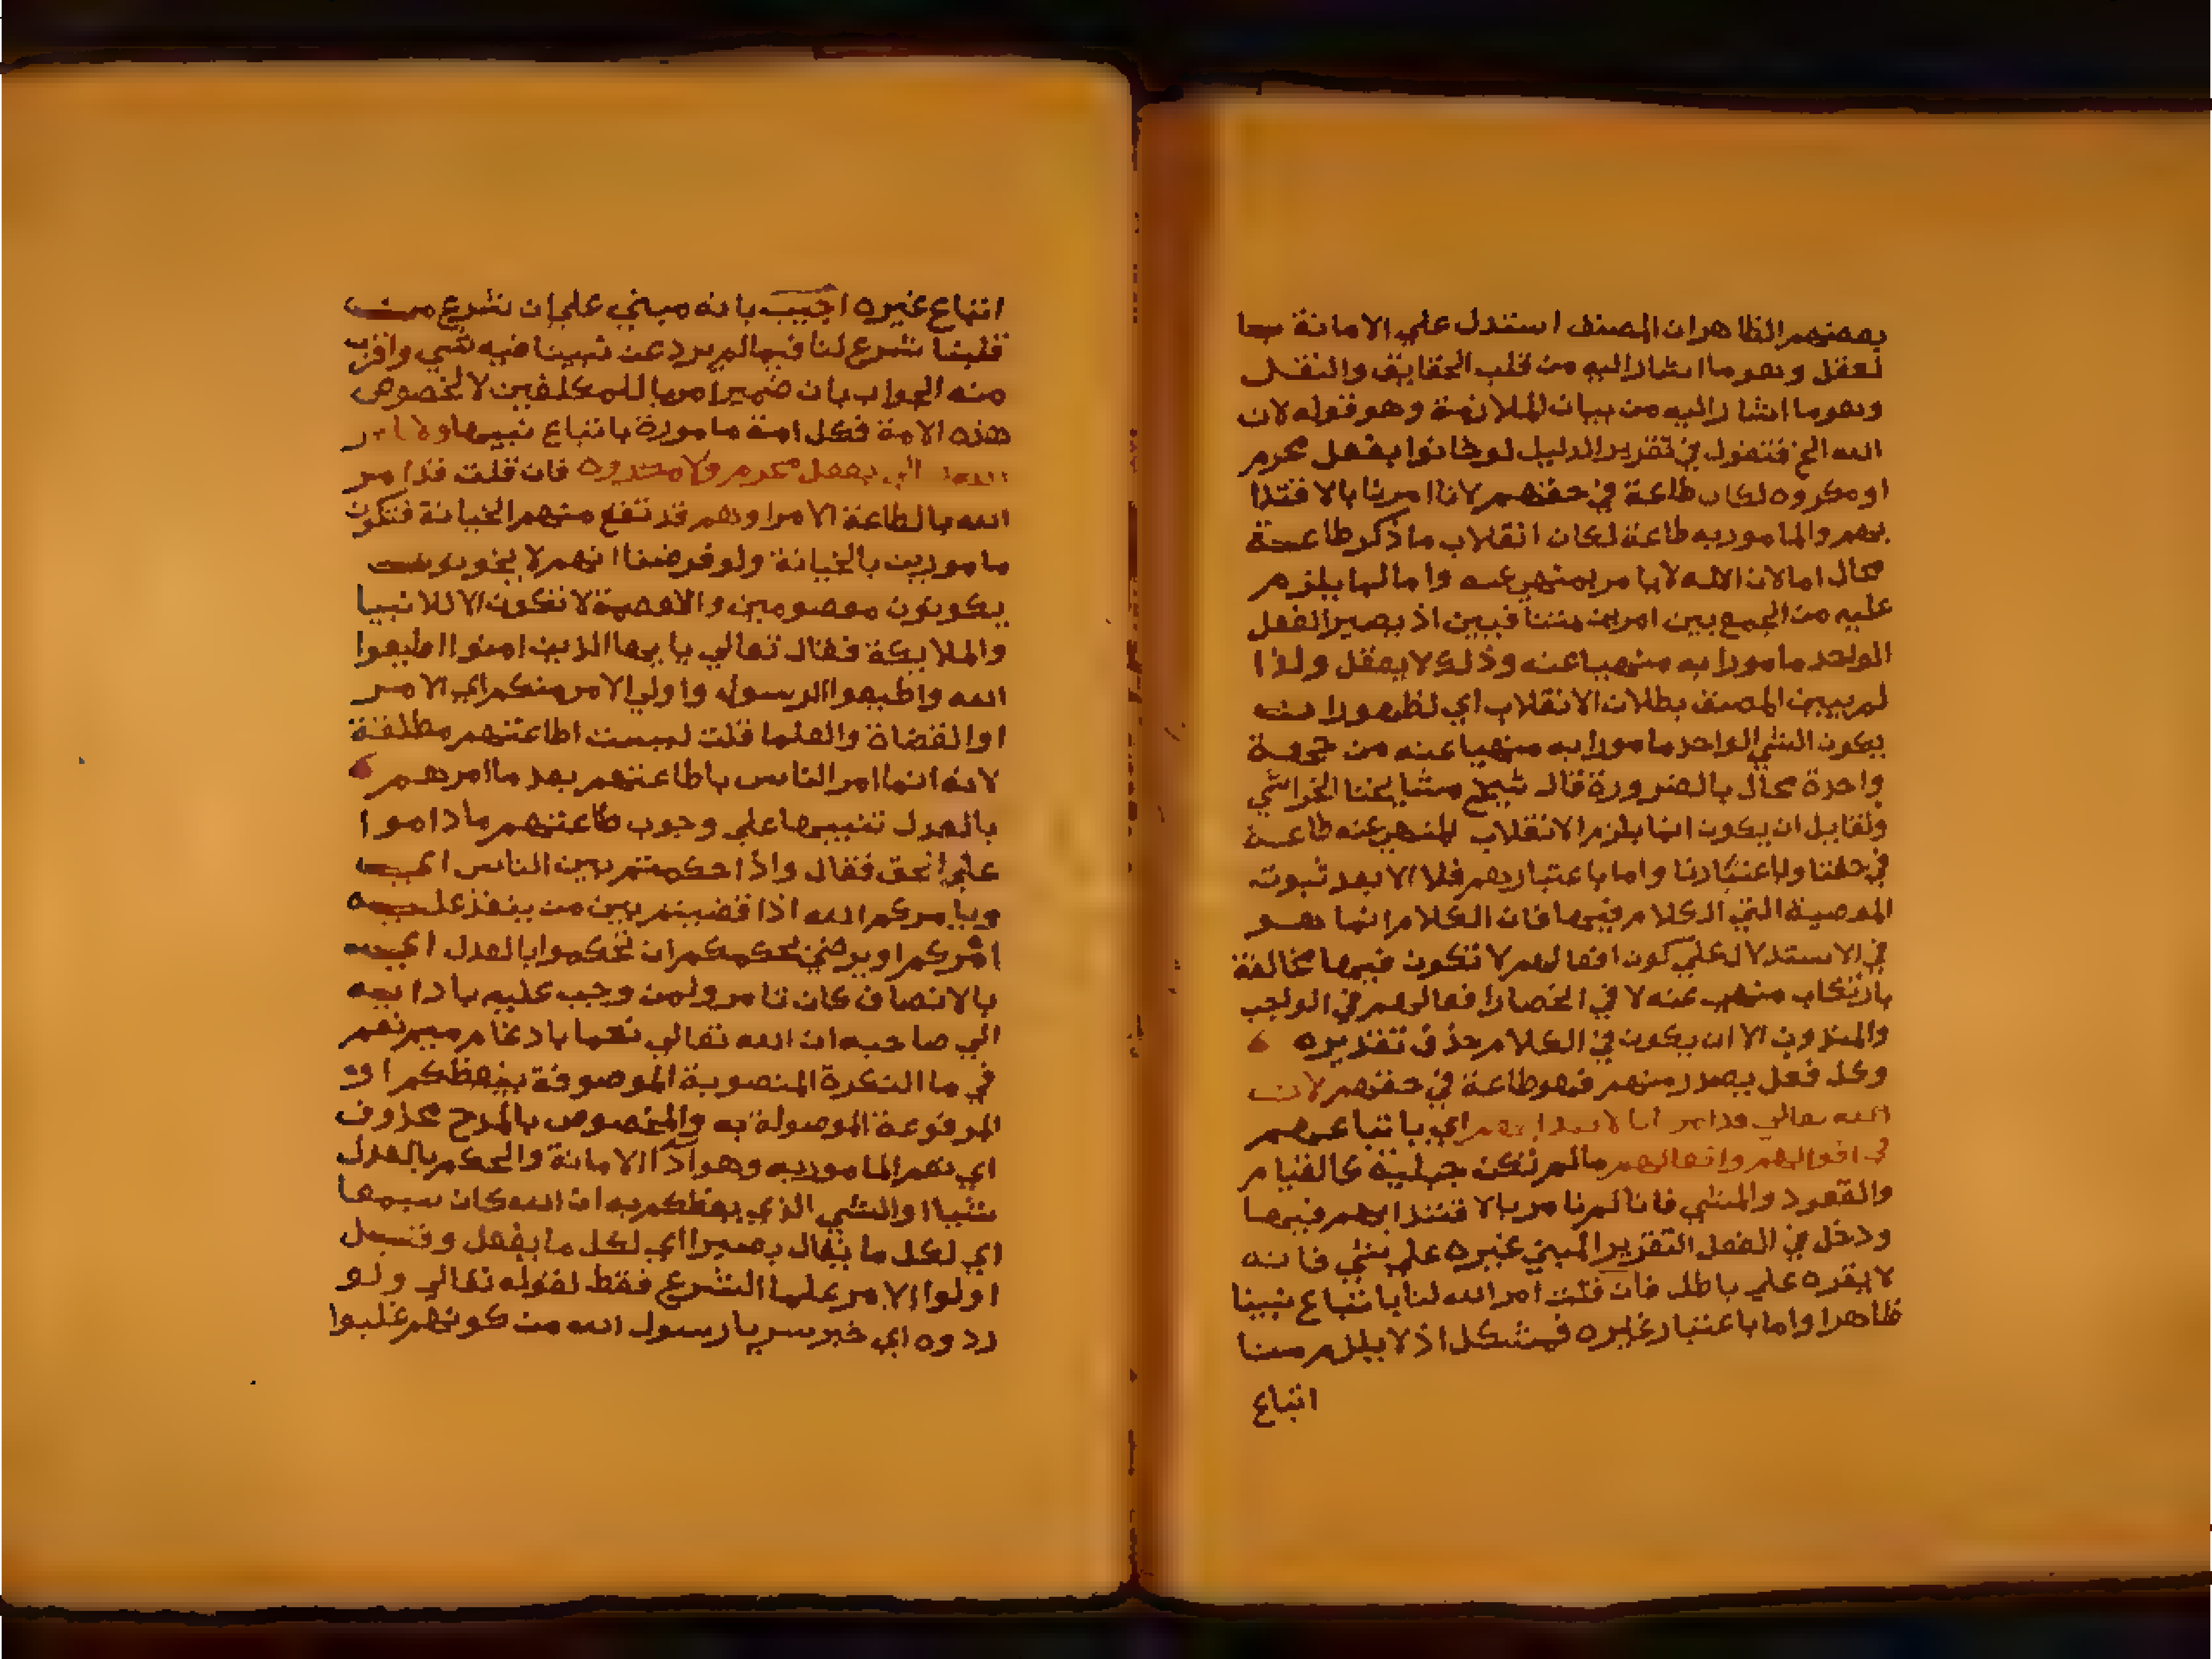 بعضهم الظاهر ان المصنف استدل علي الامانة
لعقل وهو ما اشار اليه من قلب الحقايق والنقل
وهو ما اشار اليه من بيان الملازمة وهو قوله لان
الله الخ فنقول في تقرير الدليل لو خانوا بفعل محرم
او مكروه لكان طاعة في حقهم لانا امرنا بالاقتدا
بهم والمامور به طاعة لكان انقلاب ما ذكر طاعة
محال اما لان الله لا يامر بمنهي عنه واما لما يلزم
عليه من الجمع بين امرين متنافيين اذ يصير الفعل
الواحد مامورا به منهيا عنه وذلك لا يعقل ولذا
لم يبين المصنف بطلان الانقلاب اي لظهور ان
يكون الشي الواحد مامورا به منهيا عنه من جهة
واحدة محال بالضرورة قال شيخ مشايخنا الخراشي
ولقايل ان يكون انما يلزم الانقلاب المنهي عنه طاعة
في حقنا وباعتقادنا واما باعتبارهم فلا الا بعد ثبوت
المعصية التي الكلام فيها فان الكلام انما هو
في الاستدلال علي كون افعالهم لا تكون فيها مخالفة
بارتكاب منهي عنه لا في انحصار افعالهم في الواجب
والمندوب الا ان يكون في الكلام حذف تقديره
وكل فعل يصدر منهم فهو طاعة في حقهم لان
الله تعالي قد امرنا بالاقتدا بهم اي باتباعهم
في اقوالهم وافعالهم ما لم تكن جبلية كالقيام
والقعود والمشي فانا لم نامر بالاقتدا بهم فيها
ودخل في الفعل التقرير المبني غيره علي شي فانه
لا يقره علي باطل فان قلت امر الله لنا باتباع نبينا
ظاهرا واما باعتبار غيره فمشكل اذ لا يلزم منا
اتباع
اتباع غيره اجيب بانه مبني علي ان شرع من
قلبنا شرع لنا فيما لم يرد عن نبينا فيه شي واقرب
منه الجواب بان ضمير امرنا للمكلفين لا لخصوص
هذه الامة فكل امة مامورة باتباع نبيها ولا يامر
الله تعالي بفعل محرم ولا مكروه فان قلت قد امر
الله بالطاعة الامرا وهم قد تقع منهم الخيانة فنكون
مامورين بالخيانة ولو فرضنا انهم لا يخونون
يكونون معصومين والعصمة لا تكون الا للانبيا
والملايكة فقال تعالي يا يها الذين امنوا اطيعوا
الله واطيعوا الرسول واولي الامر منكم اي الامر
او القضاة والعلما قلت ليست اطاعتهم مطلقة
لانه انما امر الناس باطاعتهم بعد ما امرهم
بالعدل تنبيها علي وجوب طاعتهم ما داموا
علي الحق فقال واذا حكمتم بين الناس اي
ويامركم الله اذا قضيتم بين من ينفذ عليه
امركم او يرضي بحكمكم ان تحكموا بالعدل اي
بالانصاف كان تامروا من وجب عليه بادايه
الي صاحبه ان الله تعالي نعما بادغام ميم نعم
في ما النكرة المنصوبة الموصوفة بيعظكم او
المرفوعة الموصولة به والمخصوص بالمدح محذوف
اي نعم المامور به وهو ادا الامانة والحكم بالعدل
شيا او الشي الذي يعظكم به ان الله كان سميعا
اي لكل ما يقال بصيرا اي لكل ما يفعل وقيل
اولوا الامر علما الشرع فقط لقوله تعالي ولو
ردوه اي خبر سريا رسول الله من كونهم غلبوا